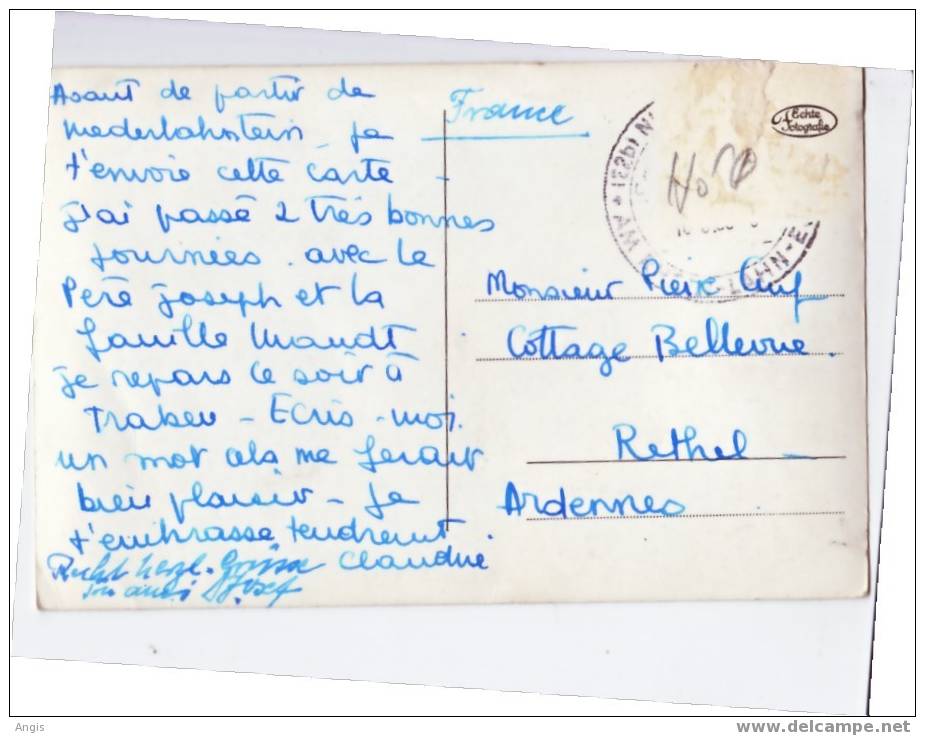 Avant de partir de
Niederlahnstein je
t'envoie cette carte -
j'ai passé 2 très bonnes
journées avec le
Père Joseph et la
famille Mandt
je repars ce soir à
Traben - Ecris-moi
un mot cela me ferait
bien plaisir - je
t'embrasse tendrement.
Claudine
Recht herzl. Grüsse
Josef
France
Echte
Fotografie
LAHN
AM
Monsieur Pierre
Cottage Bellevue.
Rethel -
Ardennes
Angis
www.delcampe.net